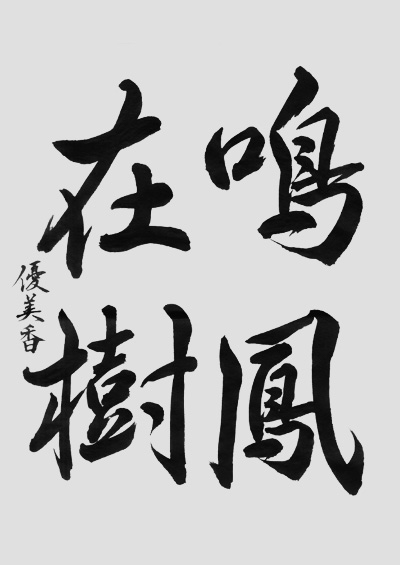 鳴鳳
在樹
優美香